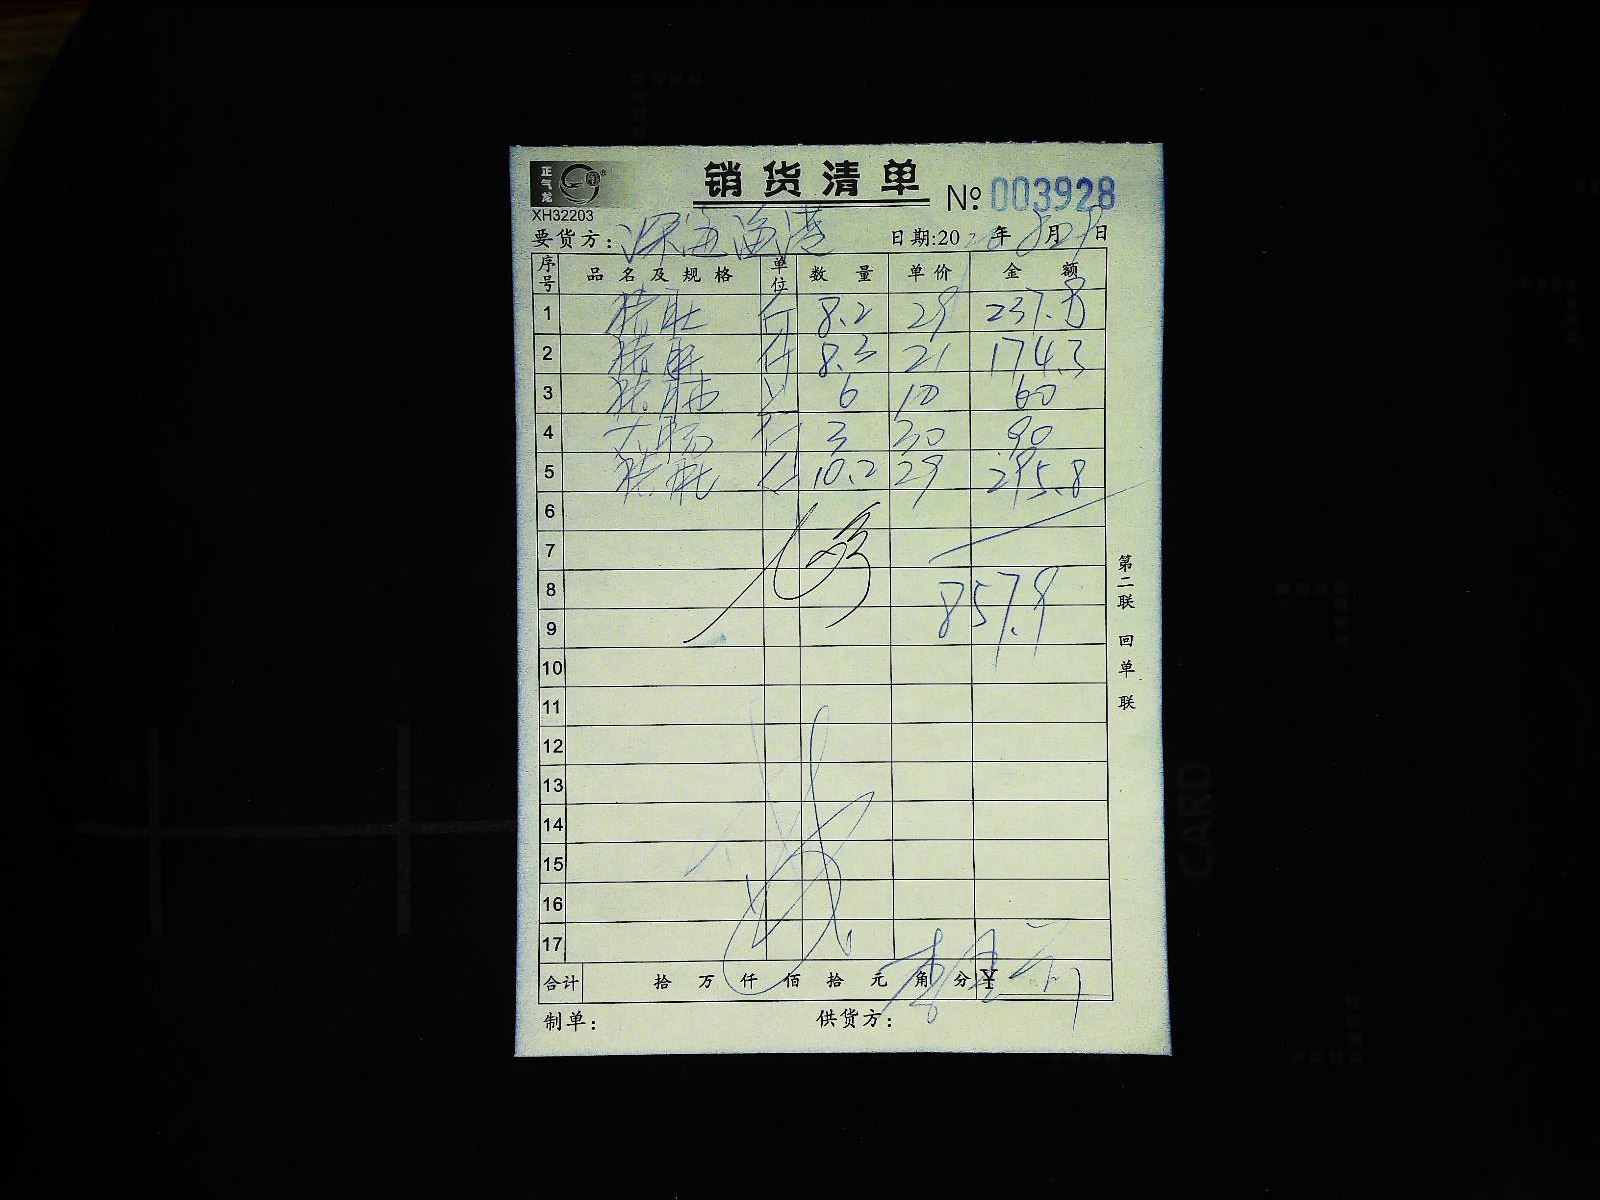 正气龙
销货清单 Nº 003928
XH32203
要货方: 深海渔港 日期:20 年 8月29日
序号 品名及规格 单位 数量 单价 金额
1 猪肚 斤 8.2 29 237.8
2 猪肝 斤 8.3 21 174.3
3 猪肺 6 10 60
4 大肠 斤 3 30 90
5 猪 斤 10.2 29 295.8
6
7
8 857.9
9
10
11
12
13
14
15
16
17
合计 拾 万 仟 佰 拾 元 角 分 ¥
制单: 供货方:
第二联 回单联
CARD